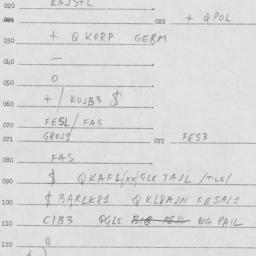 020 KAJS+L
021 022 + QPOL
030 + Q KORP GERM
040 —
050 0
060 +/ KOJB3 $
070 FESL/FAS
071 GROJS 072 FES3
080 FAS
090 $ QKAFL/xx/GLE TAJL /TILE/
100 $ BARLK81 Q KL8AJN FESAL1
110 CIB3 QGLE BIG PAIL
120 0